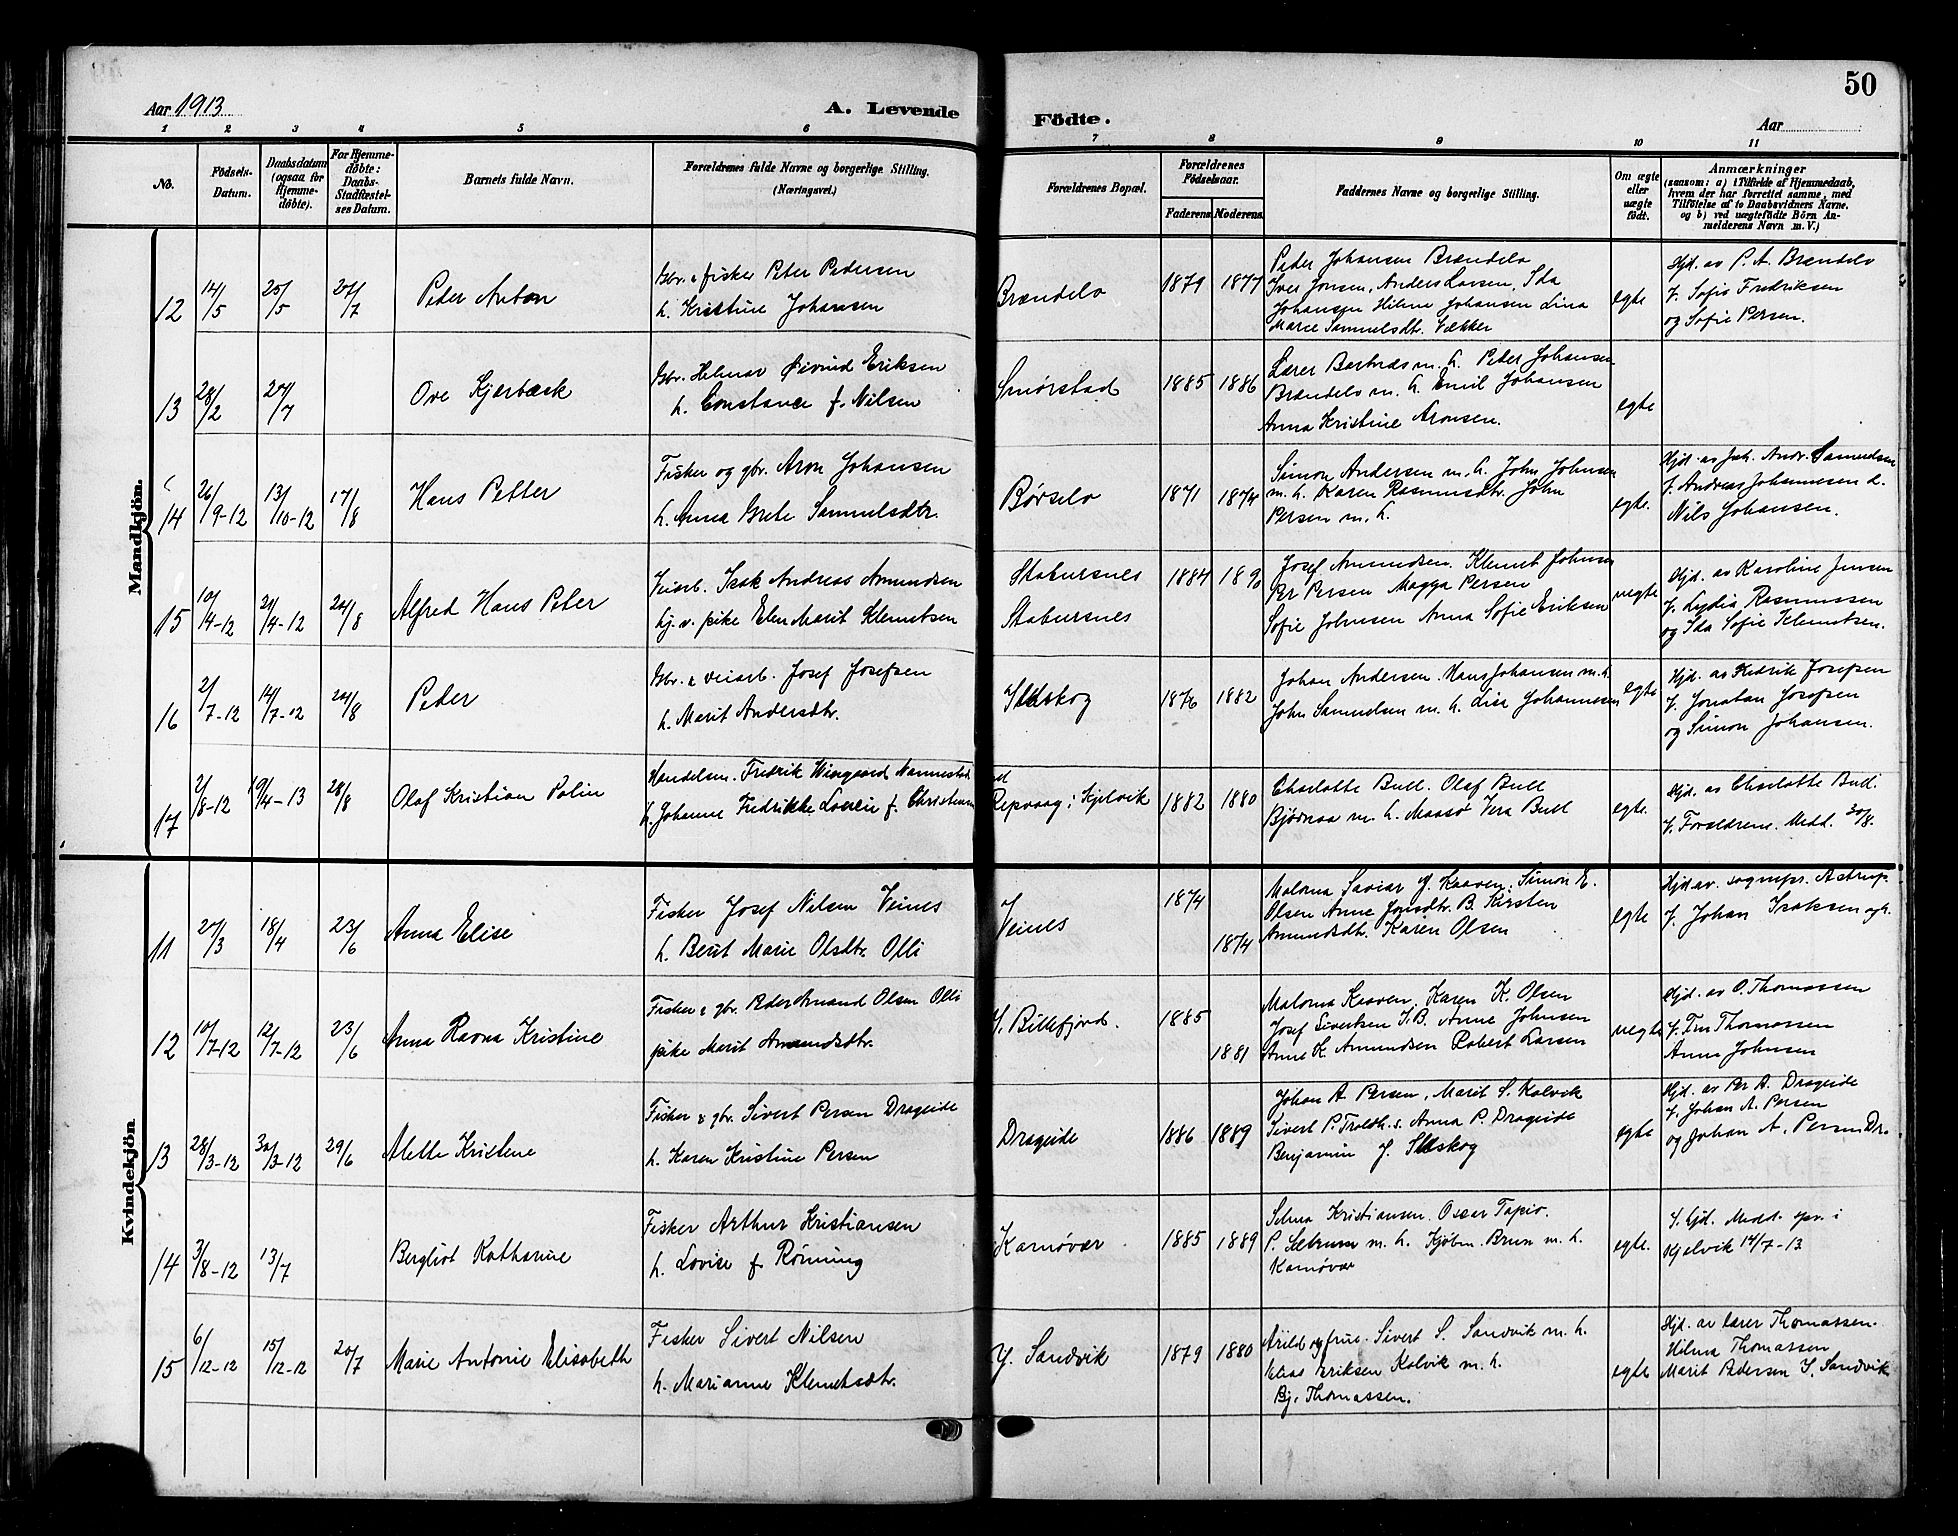 50
Aar 1913
A. Levende
Födte.
Aar
1 2 3 4 5 6 7 8 9 10 11
No.
Födsels-Datum.
Daabsdatum (ogsaa for Hjemmedöbte).
For Hjemmedöbte: Daabs-Stadfæstelses Datum.
Barnets fulde Navn.
Forældrenes fulde Navne og borgerlige Stilling.
(Næringsvei.)
Forældrenes Bopæl.
Forældrenes Födselsaar.
Faderens. Moderens.
Faddernes Navne og borgerlige Stilling.
Om ægte eller uægte födt.
Anmærkninger
(saasom: a) i Tilfælde af Hjemmedaab,
hvem der har forrettet samme, med
Tilföielse af to Daabsvidners Navne.
og b) ved uægtefödte Börn An-
melderens Navn m. V.)
Mandkjön.
12 14/5 25/5 27/7 Peter Anton
Gbr. & fisker Peter Pedersen
h. Kristine Johansen
Brændelv 1879 1877
Peder Johansen Brændelv
Iver Jonsen, Anders Larsen, Ida
Johansen Hilme Johansen Lina
Marie Samuelsdtr. Vækker
egte
Hjd. av P. A. Brændelv
V. Sofie Fredriksen
og Sofie Persen.
13 28/2 27/7 Ove Kjærbæck
Gbr. Helmar Øivind Eriksen
h. Constance f. Nilsen
Smørstad 1885 1886
Lærer Bertnæs m. h. Peder Johansen
Brændelv m. h. Emil Johansen
Anna Kristine Aronsen.
egte
14 26/9-12 13/10-12 17/8 Hans Petter
Fisker og gbr. Aron Johansen
h. Anna Grete Samuelsdtr.
Børselv 1871 1874
Simon Andersen m. h. John Johnsen
m. h. Karen Rasmusdtr. John
Persen m. h.
egte.
Hjd. av Joh. Andr. Samuelsen
V. Andreas Johannesen &
Nils Johansen.
15 10/4-12 21/4-12 24/8 Alfred Hans Peter
Veiarb. Isak Andreas Amundsen
hj. v. pike Elen Marit Klemetsen
Stabursnes
Stabursnes 1884 1890
Josef Amundsen. Klemet Johnsen
Per Persen Magga Persen
Sofie Johnsen Anna Sofie Eriksen
uegte
Hjd. av Karoline Jensen
V. Lydia Rasmussen
og Ida Sofie Klemetsen.
16 2/7-12 14/7-12 24/8 Peder
Gbr. & veiarb. Josef Josefsen
h. Marit Andersdtr.
Ildskog 1876 1882
Johan Andersen. Hans Johansen m. h.
John Samuelsen m. h. Lise Johannesen
egte
Hjd. av Fredrik Josefsen
V. Jonatan Josefsen
og Simon Johansen.
17 2/8-12 19/4-13 28/8 Olaf Kristian Palin
Handelsm. Fredrik Wingaard Nannestad
h. Johanne Fredrikke Lovise f. Christensen
Repvaag i Kjelvik 1882 1880
Charlotte Bull. Olaf Bull
Bjørnaa m. h. Maasø Vera Bull
egte.
Hjd. av Charlotte Bull.
V. Forældrene. Medd. 30/8.
Kvindekjön
11 27/3 18/4 23/6 Anna Elise
Fisker Josef Nilsen Veines
h. Berit Marie Olsdtr. Olli
Veines 1874 1874
Malena Saviar Y. Kaaven. Simon E.
Olsen Anne Jonsdtr. B. Kirsten
Amundsdtr. Karen Olsen
egte
Hjd av. sognepr. Astrup.
V. Johan Isaksen og h.
12 10/7-12 12/7-12 23/6 Anna Ravna Kristine
Fisker & gbr. Peder Amand Olsen Olli
pike Marit Amundsdtr.
I. Billefjord. 1885 1881
Malena Kaaven, Karen K. Olsen
Josef Sivertsen I. B. Anne Johnsen
Anne K. Amundsen Robert Larsen
uegte
Hjd. av O. Thomassen
V. Fru Thomassen
Anne Johnsen
13 28/3-12 30/3-12 29/6 Mette Kristine
Fisker & gbr. Sivert Persen Drageide
h. Karen Kristine Persen
Drageide 1886 1889
Johan A Persen, Marit S. Kolvik
Sivert P. Troldh. s. Anna P. Drageide
Benjamin J. Ildskog
egte
Hjd. av Per A. Drageide
V. Johan A. Persen
og Johan A. Persen Dr.
14 3/8-12 13/7 Bergliot Katharine
Fisker Arthur Kristiansen
h. Lovise f. Rönning
Kamøvær 1885 1889
Selma Kristiansen. Oscar Tapio.
P. Sætrum m. h. Kjöbm. Brun m. h.
Kamøvær
egte.
I. hjd. Medd. spr. i
Kjelvik 14/7-13.
15 6/12-12 15/12-12 20/7 Marie Antonie Elisabeth
Fisker Sivert Nilsen
h. Marianne Klemetsdtr.
Y. Sandvik 1879 1880
Arild og frue. Sivert S. Sandvik m. h.
Elias Eriksen Kolvik m. h.
Bj. Thomassen.
egte
Hjd. av lærer Thomassen.
Hilma Thomassen
Marit Pedersen I. Sandvik